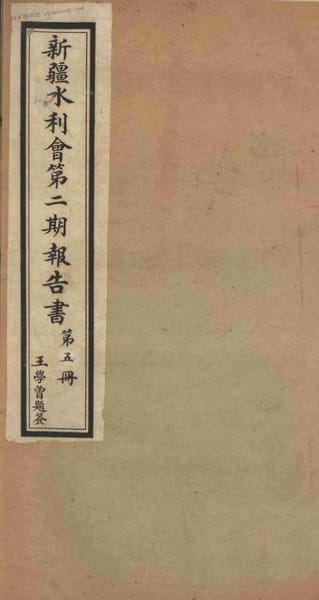 新疆水利會第二期報告書
第五冊
王學曾題簽